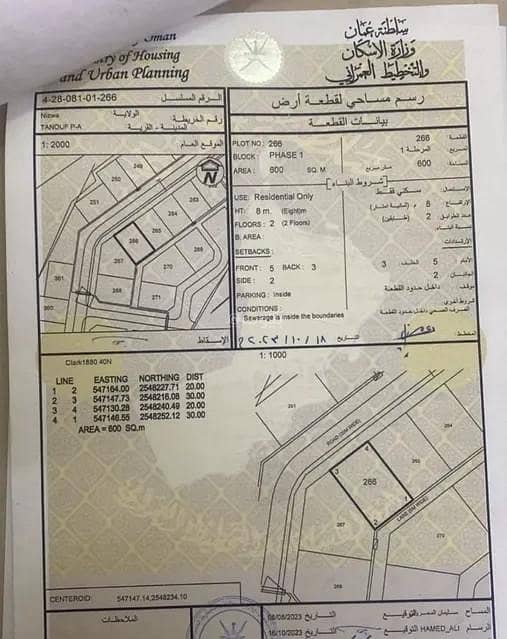 Oman
Ministry of Housing
and Urban Planning
سلطنة عمان
وزارة الإسكان
والتخطيط العمراني
4-28-081-01-266 الرقم المسلسل
Nizwa الولاية
رقم الخريطة
TANOUF P-A المدينة - القرية
1: 2000 الموقع العام
N
249
250
251
265
264
263
266
265
267
270
269
268
271
361
360
الإسقاط
رسم مساحي لقطعة أرض
بيانات القطعة
PLOT NO : 266 266 القطعة
BLOCK : PHASE 1 المرحلة 1 المربع
AREA : 600 SQ. M متر مربع 600 المساحة
شروط البناء
USE: Residential Only سكني فقط الإستعمال
HT: 8 m. (Eight)m 8 م (ثمانية أمتار) الإرتفاع
FLOORS : 2 (2 Floors) 2 (طابقين) عدد الطوابق
B. AREA : مساحة البناء
SETBACKS : الإرتدادات
FRONT : 5 BACK : 3 3 الخلف 5 الأمام
SIDE : 2 2 الجانبان
PARKING : Inside داخل حدود القطعة موقف
CONDITIONS : شروط أخرى
Sewerage is inside the boundaries الصرف الصحي داخل حدود القطعة
التاريخ ٢٠٢٣/١٠/١٨ المخطط
Clark1880 40N
1: 1000
LINE EASTING NORTHING DIST
1 2 547164.00 2548227.71 20.00
2 3 547147.73 2548216.08 30.00
3 4 547130.28 2548240.49 20.00
4 1 547146.55 2548252.12 30.00
AREA = 600 SQ.m
261
265
ROAD (30M WIDE)
4
3
266
1
2
LANE (6M WIDE)
267
270
268
CENTEROID: 547147.14,2548234.10
الملاحظات
08/08/2023 التاريخ التوقيع سليمان المعمري المساح
16/10/2023 التاريخ التوقيع HAMED_ALI الرسام